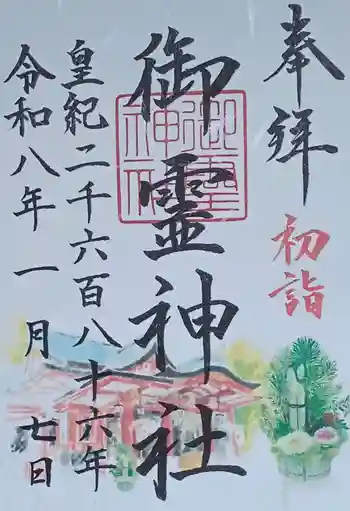 奉拝
初詣
御霊神社
御霊神社
皇紀二千六百八十六年
令和八年一月七日